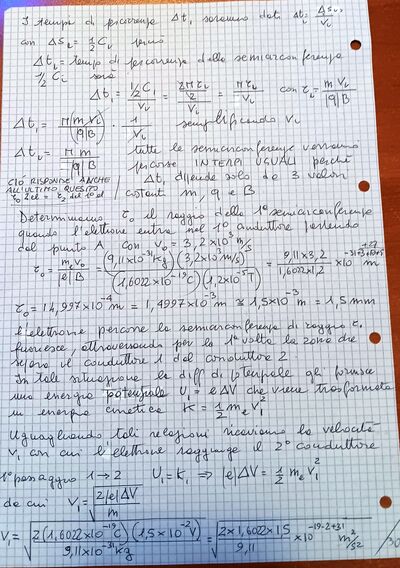 I tempi di percorrenza Δt₁ saranno dati Δtᵢ = ΔSᵢ/Vᵢ
con ΔSᵢ = 1/2 Cᵢ perciò
Δtᵢ = tempo di percorrenza della semicirconferenza
1/2 Cᵢ sarà
Δtᵢ = (1/2 Cᵢ)/Vᵢ = (2π rᵢ/2)/Vᵢ = π rᵢ/Vᵢ con rᵢ = m Vᵢ/|q|B
Δtᵢ = π m Vᵢ/|q|B · 1/Vᵢ semplificando Vᵢ
Δtᵢ = π m/|q|B tutte le semicirconferenze verranno
percorse IN TEMPI UGUALI perché
CIÒ RISPONDE ANCHE ALL'ULTIMO QUESITO Δtᵢ dipende solo da 3 valori
costanti m, q e B
Determiniamo r₀ il raggio della 1ª semicirconferenza
quando l'elettrone entra nel 1° conduttore partendo
dal punto A con V₀ = 3,2×10³ m/s
r₀ = m₂V₀/|e|B = (9,11×10⁻³¹Kg)(3,2×10³ m/s)/(1,6022×10⁻¹⁹C)(1,2×10⁻⁵T) = 9,11×3,2/1,6022×1,2 ×10⁻³¹⁺³⁺¹⁹⁺⁵ m
r₀ = 14,997×10⁻⁴ m = 1,4997×10⁻³ m ≅ 1,5×10⁻³ m = 1,5 mm
L'elettrone percorre la semicirconferenza di raggio r₀
fuoriesce, attraversando per la 1ª volta la zona che
separa il conduttore 1 dal conduttore 2:
In tale situazione la diff di potenziale gli fornisce
una energia potenziale U₁ = e ΔV che viene trasformata
in energia cinetica K = 1/2 mₑ V₁²
Uguagliando tali relazioni ricaviamo la velocità
V₁ con cui l'elettrone raggiunge il 2° conduttore
1° passaggio 1→2 U₁ = K₁ ⇒ |e|ΔV = 1/2 mₑ V₁²
da cui V₁ = √(2|e|ΔV/m)
V₁ = √(2(1,6022×10⁻¹⁹C)(1,5×10⁻²V)/9,11×10⁻³¹Kg) = √(2×1,6022×1,5/9,11 ×10⁻¹⁹⁻²⁺³¹ m²/s²)